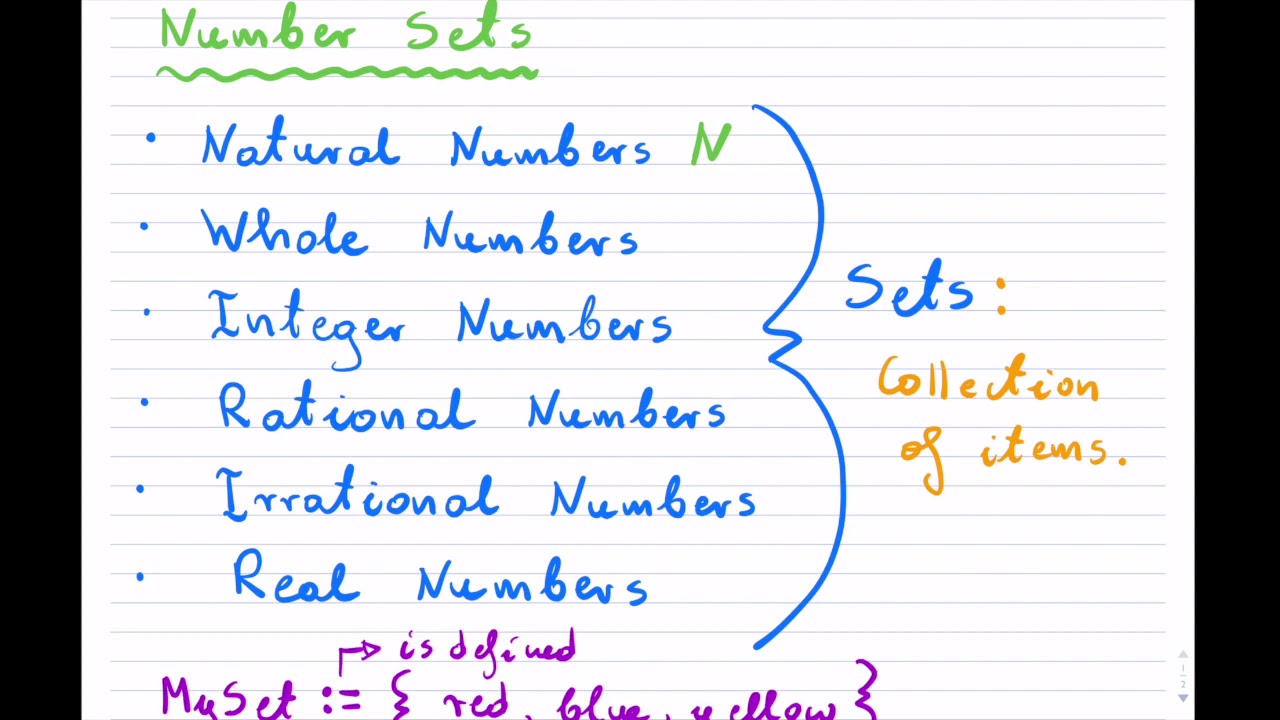 Number Sets
• Natural Numbers N
• Whole Numbers
• Integer Numbers
• Rational Numbers
• Irrational Numbers
• Real Numbers
Sets:
Collection
of items.
is defined
MySet := { red, blue, yellow }
1
2